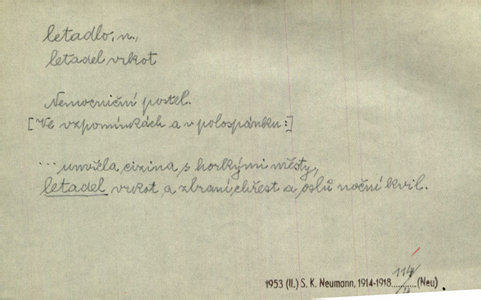 letadlo, n.,
letadel vrkot
Nemocniční postel.
[Ve vzpomínkách a v polospánku:]
... umřela cizina s horkými městy,
letadel vrkot a zbraní chřest a oslů noční kvil.
114
1953 (II.) S. K. Neumann, 1914-1918, (Neu)